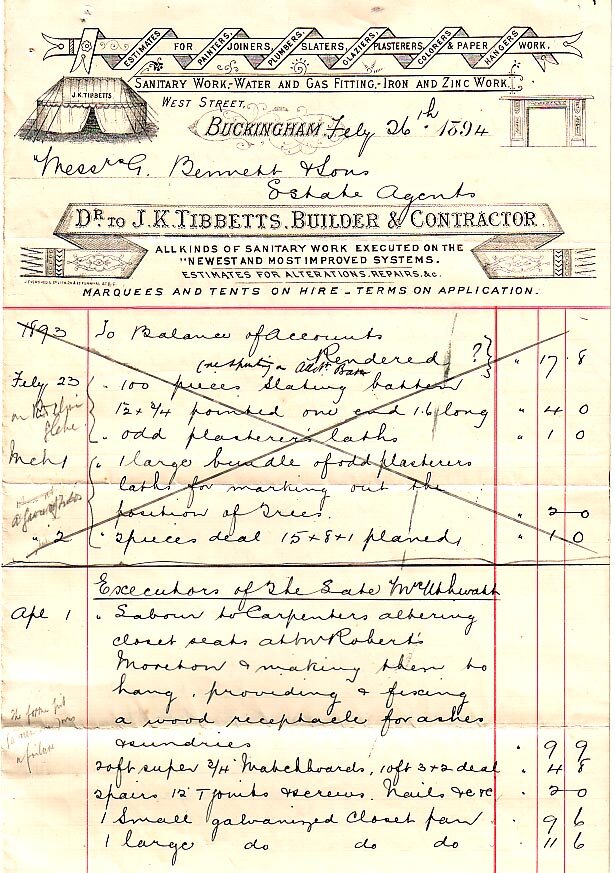 ESTIMATES FOR PAINTERS, JOINERS, PLUMBERS, SLATERS, GLAZIERS, PLASTERERS, COLORERS & PAPER HANGERS WORK.
SANITARY WORK,-WATER AND GAS FITTING,-IRON AND ZINC WORK.
J.K.TIBBETTS
WEST STREET,
BUCKINGHAM, Feby 26th 1894
Messrs G. Bennett & Sons
Estate Agents
DR. TO J.K.TIBBETTS, BUILDER & CONTRACTOR
ALL KINDS OF SANITARY WORK EXECUTED ON THE
"NEWEST AND MOST IMPROVED SYSTEMS.
ESTIMATES FOR ALTERATIONS, REPAIRS, &c.
MARQUEES AND TENTS ON HIRE - TERMS ON APPLICATION.
1893 To Balance of Accounts
Rendered ? " 17 . 8
Feby 23 " 100 pieces Slating battens
12 x 3/4 pointed one end 1.6 long " 4 0
" odd plasterer's laths " 1 0
Mch 1 " 1 large bundle of odd plasterers
laths for marking out the
position of Trees " 2 0
" 2 " 3 pieces deal 15 + 8 + 1 planed " 1 0
Executors of The Late Mr Uthwatt
Apl 1 " Labour to Carpenters altering
closet seats at Mr Robert's
Moreton & making them to
hang, providing & fixing
a wood receptacle for ashes
& sundries " 9 9
20ft super 3/4 Matchboards, 10ft 3 x 2 deal " 4 8
2 pairs 12" T joints & screws. Nails &c &c " 2 0
1 Small galvanized Closet pan 9 6
1 large do do do 11 6